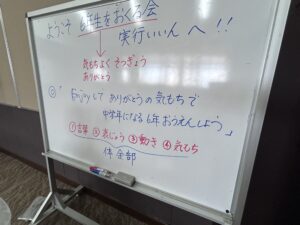 ようこそ 6年生をおくる会
実行いいんへ!!
気もちよく さつぎょう
ありがとう
◎「Enjoyして ありがとうの気もちで
中学年になる6年おうえんしよう」
①言葉 ②表じょう ③動き ④気もち
体全部